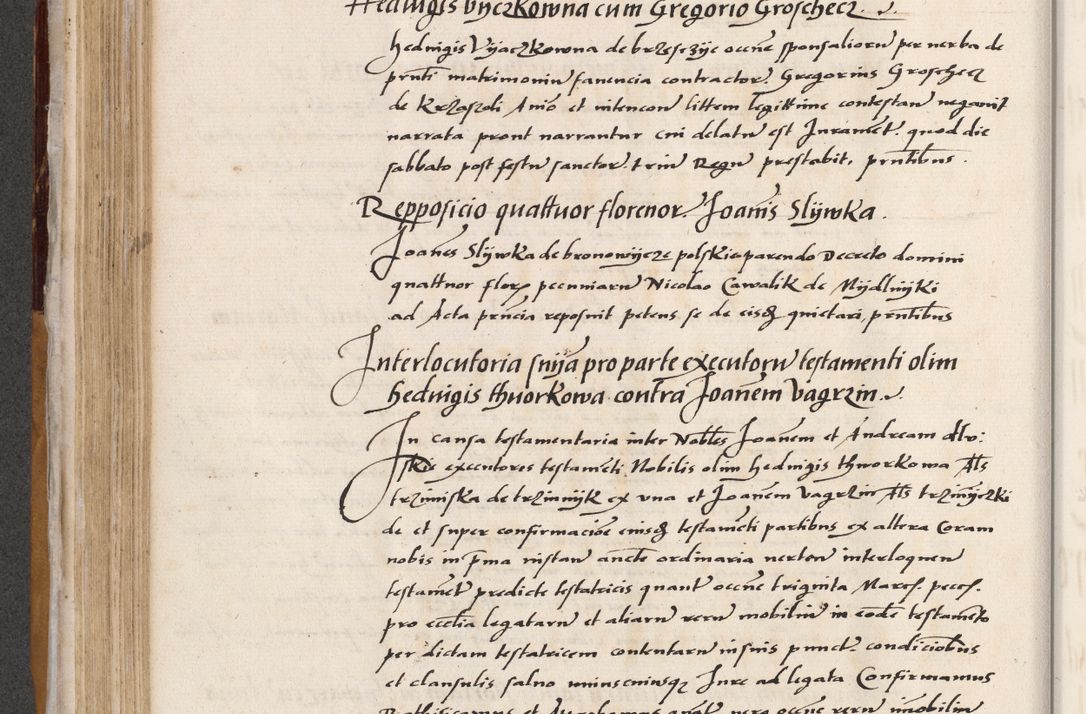 Hedvigis Vyczkowna cum Gregorio Groschecz.
Hedvigis Vyaczkowna de brzesczye occne sponsaliorum per verba de
pnti matrimonium faciencia contractor. Gregorius Groschecz
de Krzaszoli Anio et intencon littem legittime contestan negavit
narrata pront narrantur cui delatum est Iurament. quod die
sabbato post festum sanctor. trium Regum prestabit, pntibus.
Repposicio quattuor florenor. Joanis Slywka.
Joanes Slywka de bronowycze polskie parendo Decreto domini
quattuor flor pecuniarum Nicolao Cawalik de Mydlnyki
ad Acta pncia reposuit petens se de eisd quietari, pntibus
Interlocutoria snia pro parte executorum testamenti olim
hedvigis thworkowa contra Joanem Vagrzin.
In causa testamentaria inter Nobles Joanem et Andream
skie executores testameti Nobilis olim hedvigis thworkowa Als
trziniska de trzinnyk ex una et Joanem Vagrzin Als trzinyczki
de et super confirmacioe eiusd testameti partibus ex altera Coram
nobis in pma instan ancte ordinaria verten interloquen
testament predicte testatricis quant occne triginta Marcs. peccs.
pro ecclia legatarum et aliarum rerum mobilium in eode testameto
per dictam testatricem contentarum in suis punct. condiciobus
et clausulis salvo uniuscuiusq Iure ad legata Confirmamus
Ratificamus et Approbamus quat vero occne rerum imobilium